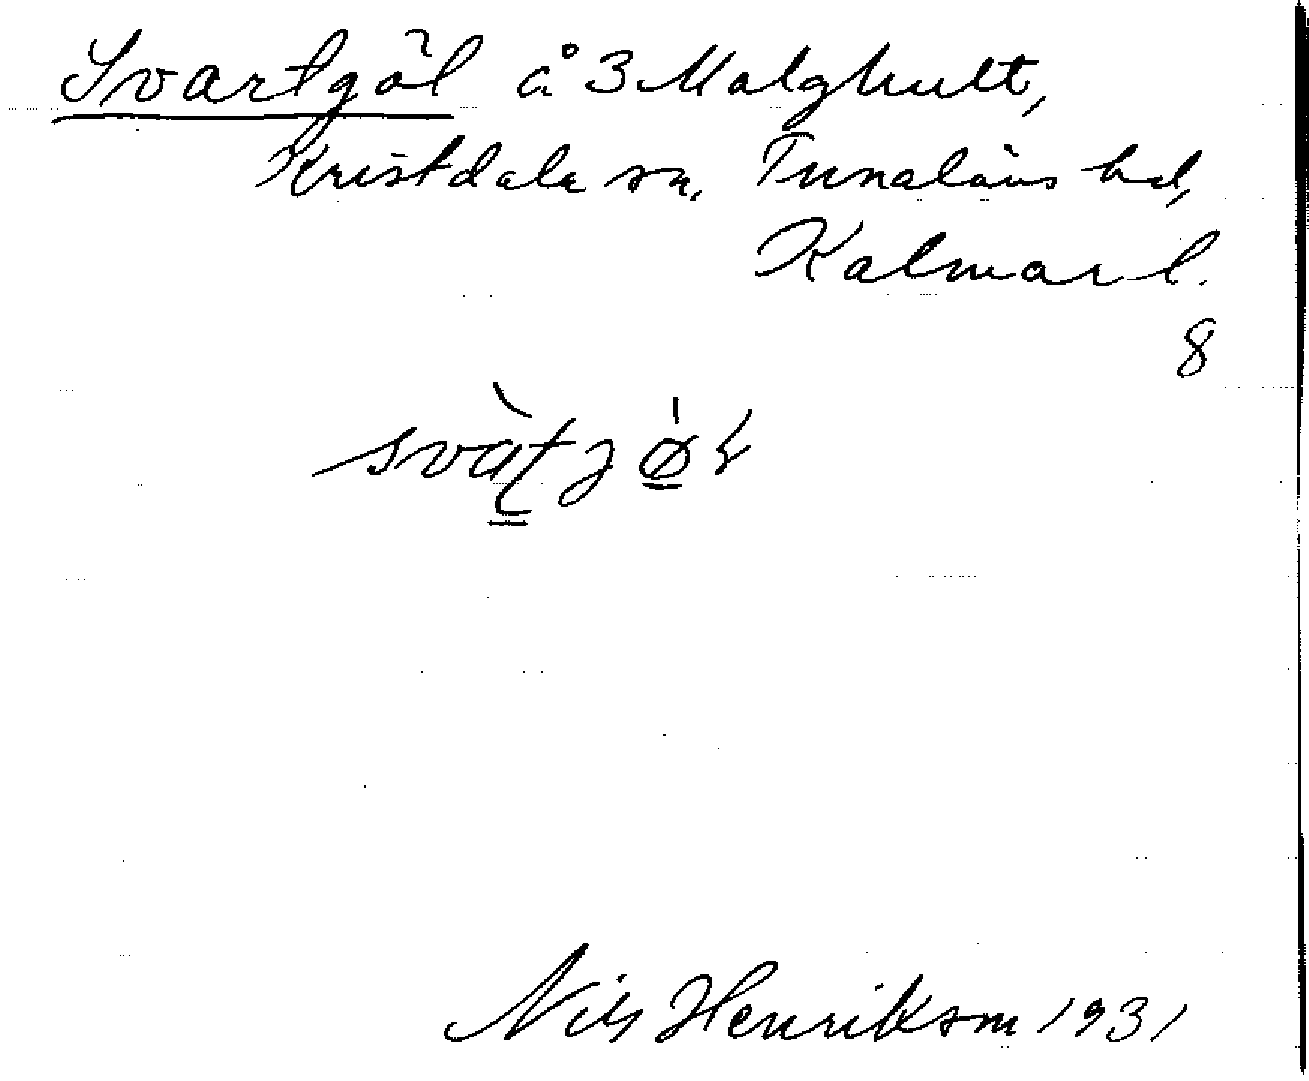 Svartgöl å 3 Malghult,
Kristdala sn. Tunaläns hd,
Kalmar l.
8
Nils Henriksson 1931